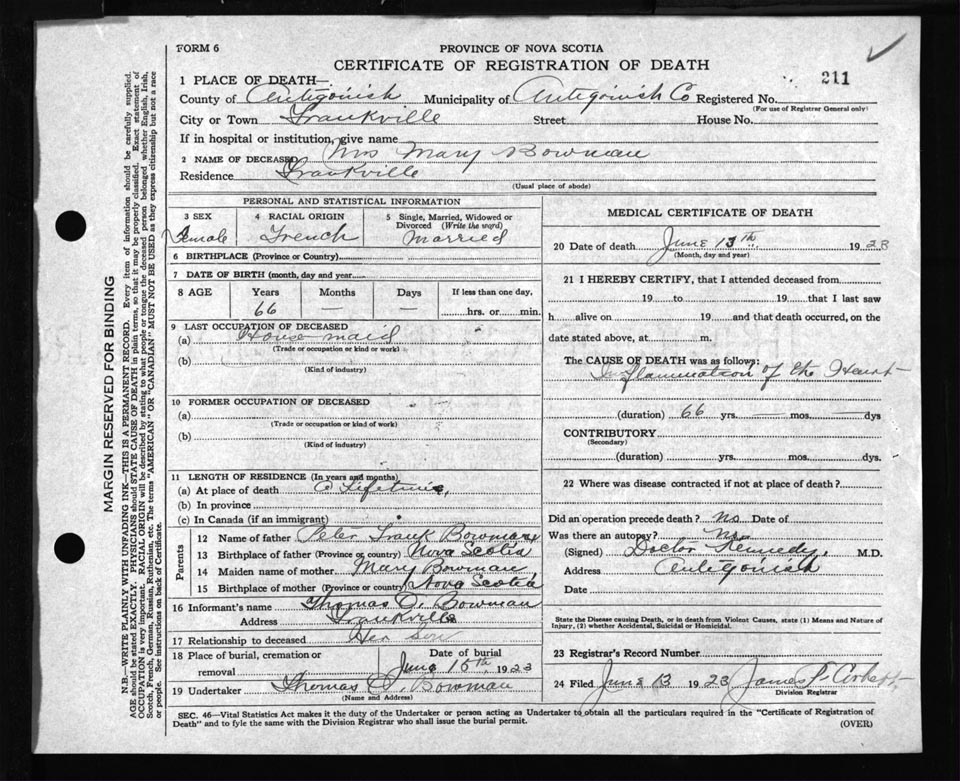 FORM 6
PROVINCE OF NOVA SCOTIA
CERTIFICATE OF REGISTRATION OF DEATH
211
1 PLACE OF DEATH—
County of Antigonish Municipality of Antigonish Co Registered No.
(For use of Registrar General only)
City or Town Frankville Street House No.
If in hospital or institution, give name
2 NAME OF DECEASED Mrs Mary Bowman
Residence Frankville
(Usual place of abode)
PERSONAL AND STATISTICAL INFORMATION
3 SEX
Female
4 RACIAL ORIGIN
French
5 Single, Married, Widowed or Divorced (Write the word)
Married
6 BIRTHPLACE (Province or Country)
7 DATE OF BIRTH (month, day and year)
8 AGE Years Months Days If less than one day,
66 — — hrs. or min.
9 LAST OCCUPATION OF DECEASED
(a) House maid
(Trade or occupation or kind or work)
(b)
(Kind of industry)
10 FORMER OCCUPATION OF DECEASED
(a)
(Trade or occupation or kind of work)
(b)
(Kind of industry)
11 LENGTH OF RESIDENCE (In years and months)
(a) At place of death Lifetime
(b) In province
(c) In Canada (if an immigrant)
Parents
12 Name of father Peter Frank Bowman
13 Birthplace of father (Province or country) Nova Scotia
14 Maiden name of mother Mary Bowman
15 Birthplace of mother (Province or country) Nova Scotia
16 Informant's name Thomas Bowman
Address Frankville
17 Relationship to deceased Her Son
18 Place of burial, cremation or removal
Date of burial
June 15th 1923
19 Undertaker Thomas Bowman
(Name and Address)
MEDICAL CERTIFICATE OF DEATH
20 Date of death June 13th 1923
(Month, day and year)
21 I HEREBY CERTIFY, that I attended deceased from
19 to 19 that I last saw
h alive on 19 and that death occurred, on the
date stated above, at m.
The CAUSE OF DEATH was as follows:
Inflammation of the Heart
(duration) 66 yrs. — mos. — dys
CONTRIBUTORY
(Secondary)
(duration) yrs. mos. dys.
22 Where was disease contracted if not at place of death?
Did an operation precede death? No Date of
Was there an autopsy? No
(Signed) Doctor Kennedy, M.D.
Address Antigonish
Date
State the Disease causing Death, or in death from Violent Causes, state (1) Means and Nature of
Injury, (2) whether Accidental, Suicidal or Homicidal.
23 Registrar's Record Number
24 Filed June 13 1923 James P. Corbett
Division Registrar
SEC. 46—Vital Statistics Act makes it the duty of the Undertaker or person acting as Undertaker to obtain all the particulars required in the "Certificate of Registration of
Death" and to fyle the same with the Division Registrar who shall issue the burial permit.
(OVER)
MARGIN RESERVED FOR BINDING
N.B.—WRITE PLAINLY WITH UNFADING INK—THIS IS A PERMANENT RECORD. Every item of information should be carefully supplied.
AGE should be stated EXACTLY. PHYSICIANS should STATE CAUSE OF DEATH in plain terms, so that it may be properly classified. Exact statement of
OCCUPATION is very important. RACIAL ORIGIN will be described by stating to what people or tongue the deceased person belonged whether English, Irish,
Scotch, French, German, Russian, Ruthenian, etc. The terms "AMERICAN" OR "CANADIAN" MUST NOT BE USED as they express citizenship but not a race
or people. See instructions on back of Certificate.